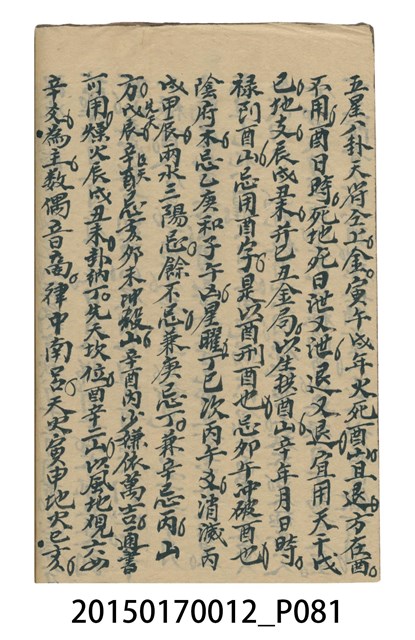 五星八卦天符全上金寅午戌年火死酉山且退方在酉
不用酉日時死地死日泄又泄退又退宜用天干戊
己地支辰戌丑未并巳丑金局以生扶酉山辛年月日時
祿到酉山忌用酉字是以酉刑酉也忌卯午沖破酉也
陰府不忌乙庚和子午凶星曜丁巳次丙午又消滅丙
戌甲辰雨水三陽忌餘不忌兼庚忌丁兼辛忌丙山
方戊辰辛酉忌亥卯未沖殺山辛酉丙少嫌依萬吉通書
可用煤火辰戌丑未卦納丁先天坎位酉辛二山以風地觀六四
辛爻為主數偶五音商律中南呂天火寅申地火巳亥
20150170012_P081